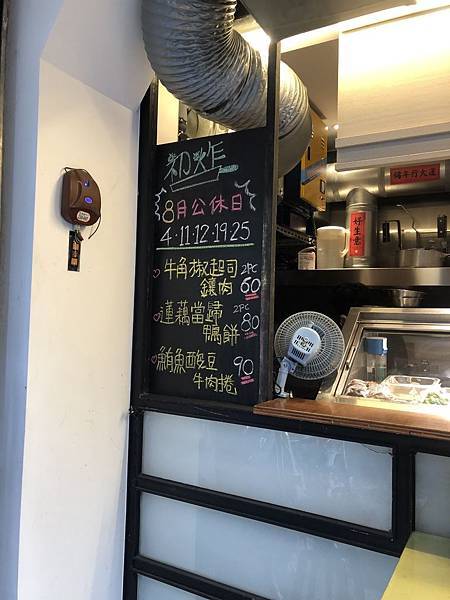 初炸
8月公休日
4.11.12.19.25
牛角椒起司 2PC
鑲肉 60
蓮藕當歸 2PC
鴨餅 80
鮪魚酪豆
牛肉捲 90
好生意